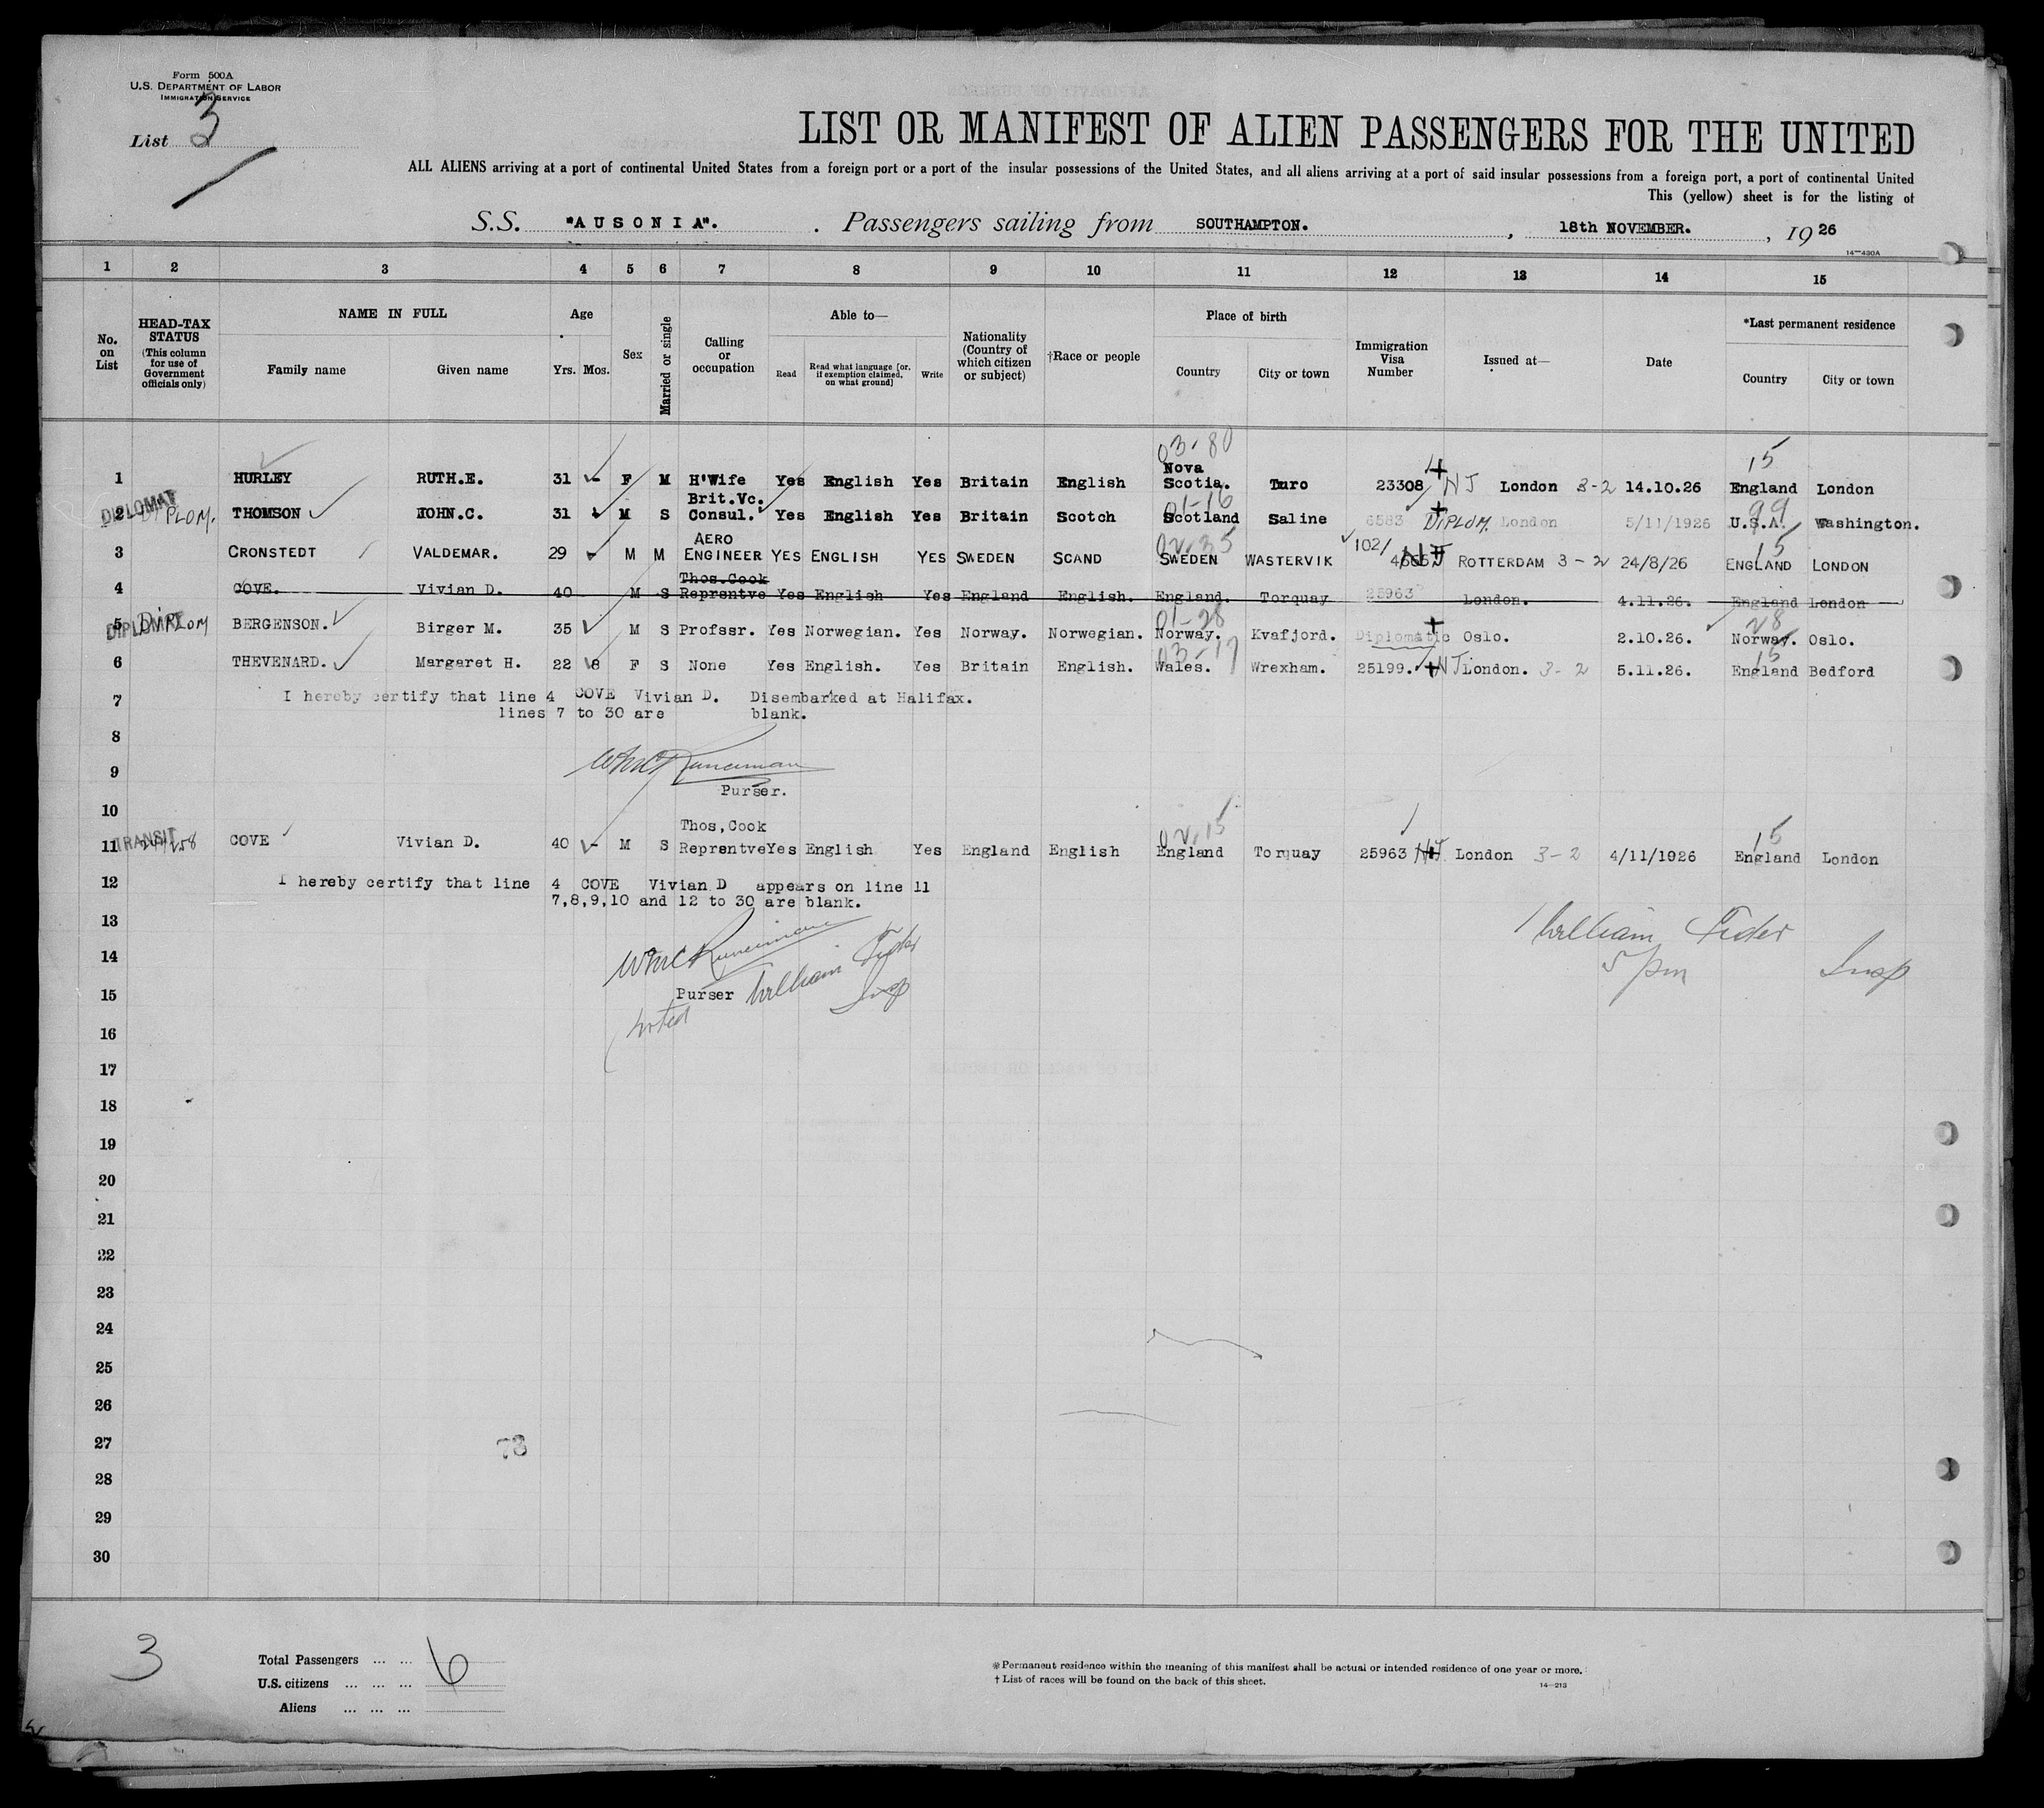 Form 500A
U.S. DEPARTMENT OF LABOR
IMMIGRATION SERVICE
List 3
LIST OR MANIFEST OF ALIEN PASSENGERS FOR THE UNITED
ALL ALIENS arriving at a port of continental United States from a foreign port or a port of the insular possessions of the United States, and all aliens arriving at a port of said insular possessions from a foreign port, a port of continental United
This (yellow) sheet is for the listing of
S.S. "AUSONIA". Passengers sailing from SOUTHAMPTON. , 18th NOVEMBER. , 19 26
14—430A
1 2 3 4 5 6 7 8 9 10 11 12 13 14 15
No. on List
HEAD-TAX STATUS (This column for use of Government officials only)
NAME IN FULL
Family name Given name
Age
Yrs. Mos.
Sex
Married or single
Calling or occupation
Able to—
Read Read what language [or, if exemption claimed, on what ground] Write
Nationality (Country of which citizen or subject)
†Race or people
Place of birth
Country City or town
Immigration Visa Number
Issued at—
Date
*Last permanent residence
Country City or town
03-80 15
1 HURLEY RUTH.E. 31 - F M H'Wife Yes English Yes Britain English Nova Scotia. Turo 23308 NJ London 3-2 14.10.26 England London
01-16 99
DIPLOMAT
2 DIPLOM. THOMSON JOHN.C. 31 M S Brit.Vc. Consul. Yes English Yes Britain Scotch Scotland Saline 6583 DIPLOM. London 5/11/1926 U.S.A. Washington.
02-35 15
3 CRONSTEDT VALDEMAR. 29 - M M AERO ENGINEER YES ENGLISH YES SWEDEN SCAND SWEDEN WASTERVIK 102/ ROTTERDAM 3-2 24/8/26 ENGLAND LONDON
4 COVE. Vivian D. 40 M S Thos.Cook Reprsntve Yes English Yes England English. England. Torquay 25963 London. 4.11.26. England London
01-28 28
DIPLOMAT
5 DIPLOM BERGENSON. Birger M. 35 M S Profssr. Yes Norwegian. Yes Norway. Norwegian. Norway. Kvafjord. Diplomatic Oslo. 2.10.26. Norway. Oslo.
03-17 15
6 THEVENARD. Margaret H. 22 8 F S None Yes English. Yes Britain English. Wales. Wrexham. 25199. NJ London. 3-2 5.11.26. England Bedford
7 I hereby certify that line 4 COVE Vivian D. Disembarked at Halifax.
lines 7 to 30 are blank.
8
9
Purser.
10
02-15 15
TRANSIT
11 COVE Vivian D. 40 - M S Thos,Cook Reprsntve Yes English Yes England English England Torquay 25963 NJ London 3-2 4/11/1926 England London
12 I hereby certify that line 4 COVE Vivian D appears on line 11
7,8,9,10 and 12 to 30 are blank.
13
William Fider
14
5 pm Insp
William Fider
15 Purser Insp
noted
16
17
18
19
20
21
22
23
24
25
26
27
73
28
29
30
3
Total Passengers ... ... 6
U.S. citizens ... ... ...
Aliens ... ... ...
*Permanent residence within the meaning of this manifest shall be actual or intended residence of one year or more.
† List of races will be found on the back of this sheet.
14—213